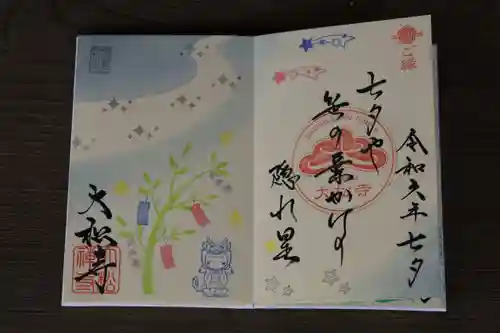 ご縁
令和六年七夕
七夕や
笹の葉かげの
隠れ星
大和寺
大和寺